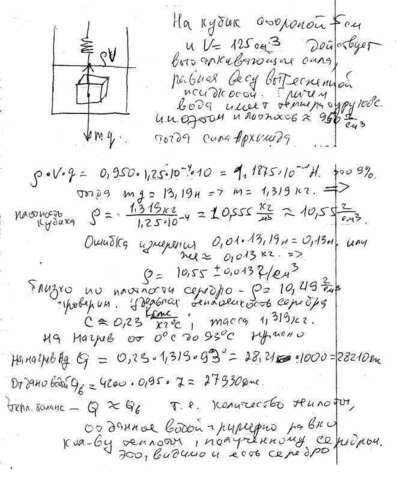 На кубик стороной 5 см
и V = 125 см³ действует
выталкивающая сила,
равная весу вытесненной
жидкостью. Причем
вода имеет температуру 100°C
и плотность ≈ 950
тогда сила Архимеда
ρA
mg
ρ·V·g = 0,950·1,25·10⁻⁴·10 = 1,1875·10⁻³ Н.
тогда mg = 13,19н ⇒ m = 1,319 кг. ⇒
плотность кубика ρ = 1,319кг / 1,25·10⁻⁴ = 10555 кг/м³ ≈ 10,55 г/см³
Ошибка измерения 0,01·13,19н = 0,13н. или
≈ 0,013 кг. ⇒
ρ = 10,55 ± 0,013 г/см³
Близко по плотности серебро – ρ = 10,49 г/см³
Проверим. Удельная теплоемкость серебра
C ≈ 0,23 кДж/кг°C, масса 1,319кг.
на нагрев от 0°C до 93°C нужно
на нагрев Q = 0,23·1,319·93 = 28,21·1000 = 28210 Дж
Отдано водой Qб = 4200·0,95·7 = 27930 Дж.
тепл. баланс – Q ≈ Qб т.е. количество теплоты,
отданное водой примерно равно
кол-ву теплоты, полученному серебром.
Это, видимо и есть серебро